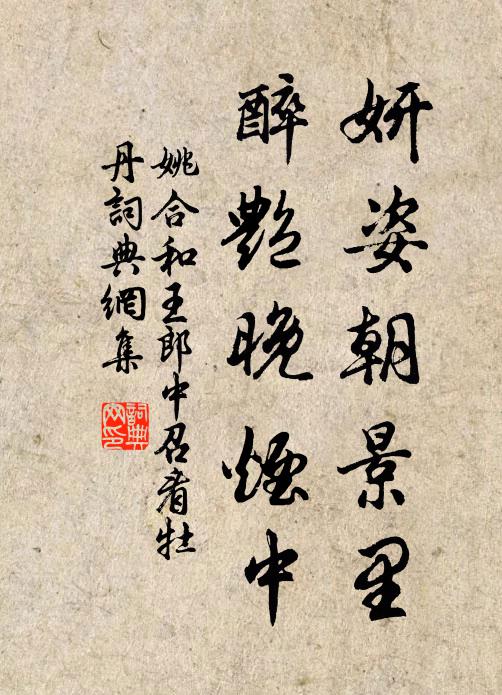 妍姿朝景里
醉艷晚煙中
姚合和王郎中召看牡
丹詞典網集
詞典
网印